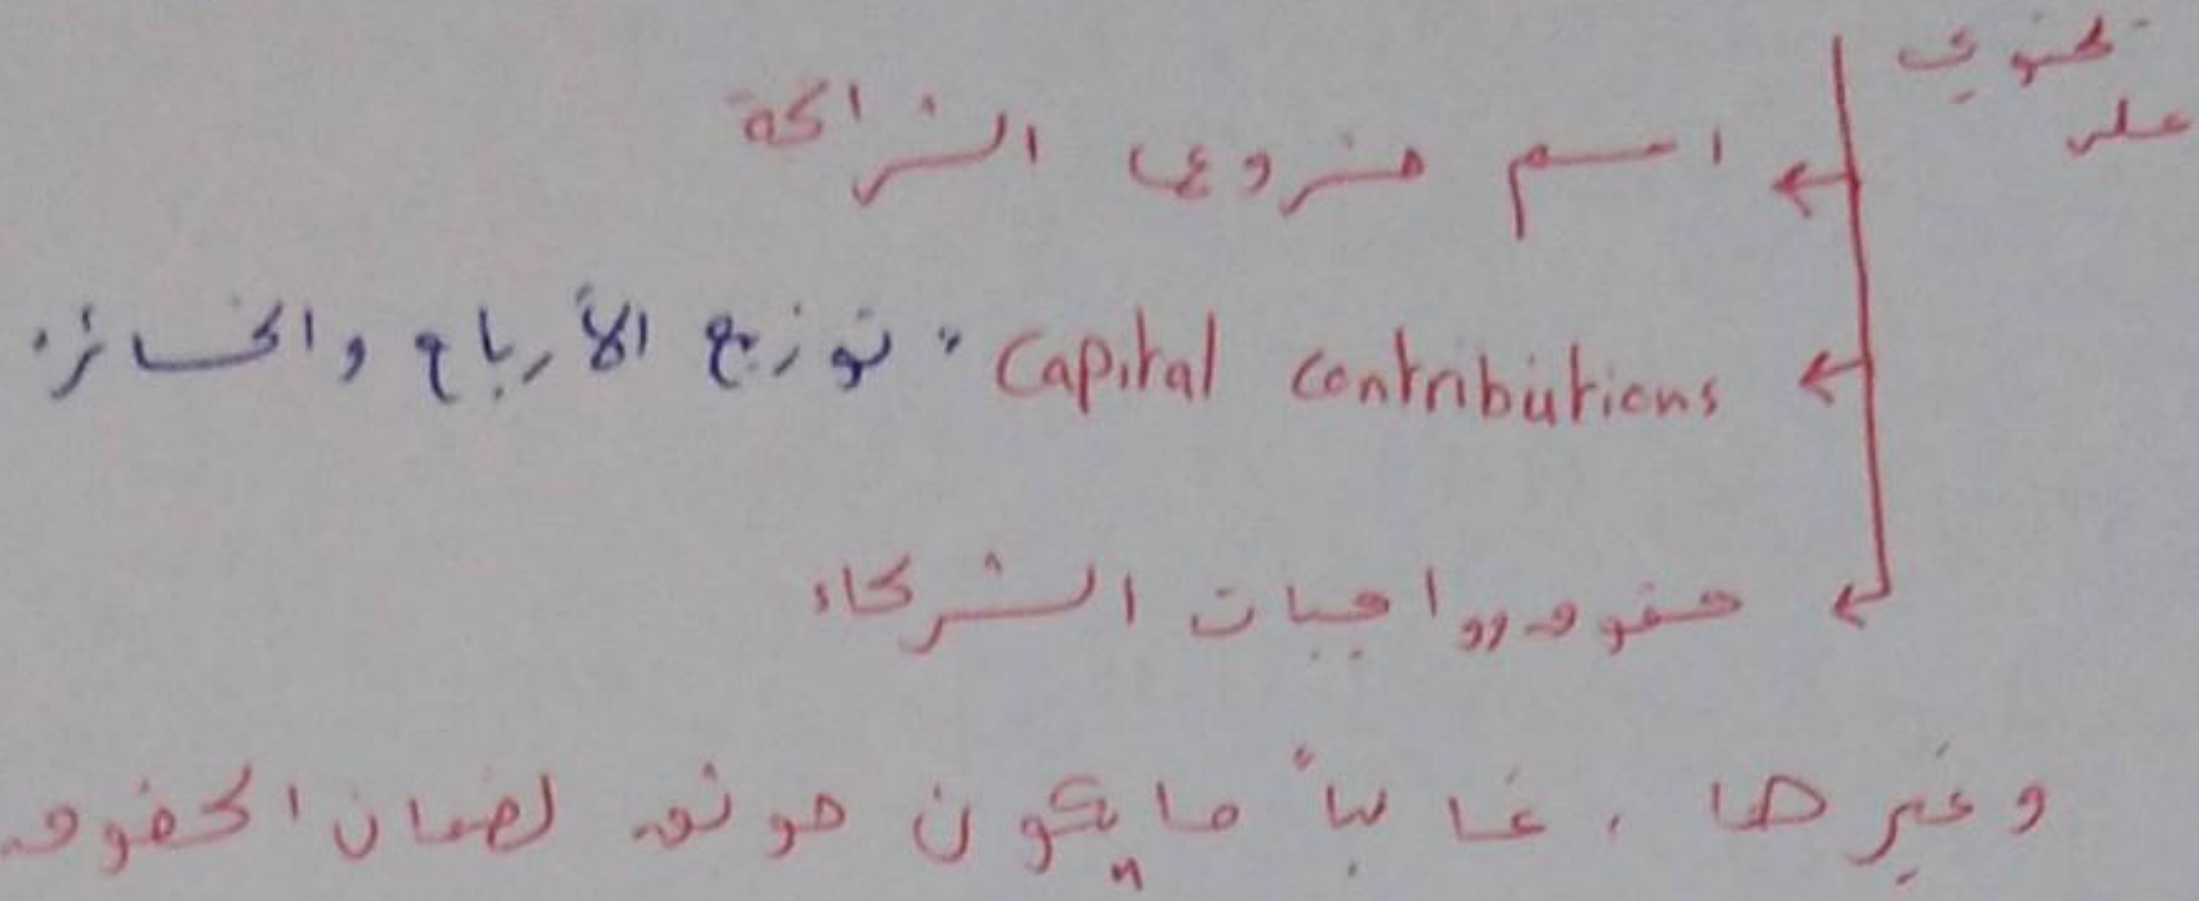 تحتوي
على
اسم مشروع الشراكة
Capital contributions "توزيع الأرباح والخسائر.
حقوق وواجبات الشركاء
وغيرها . غالباً ما يكون موثق لضمان الحقوق